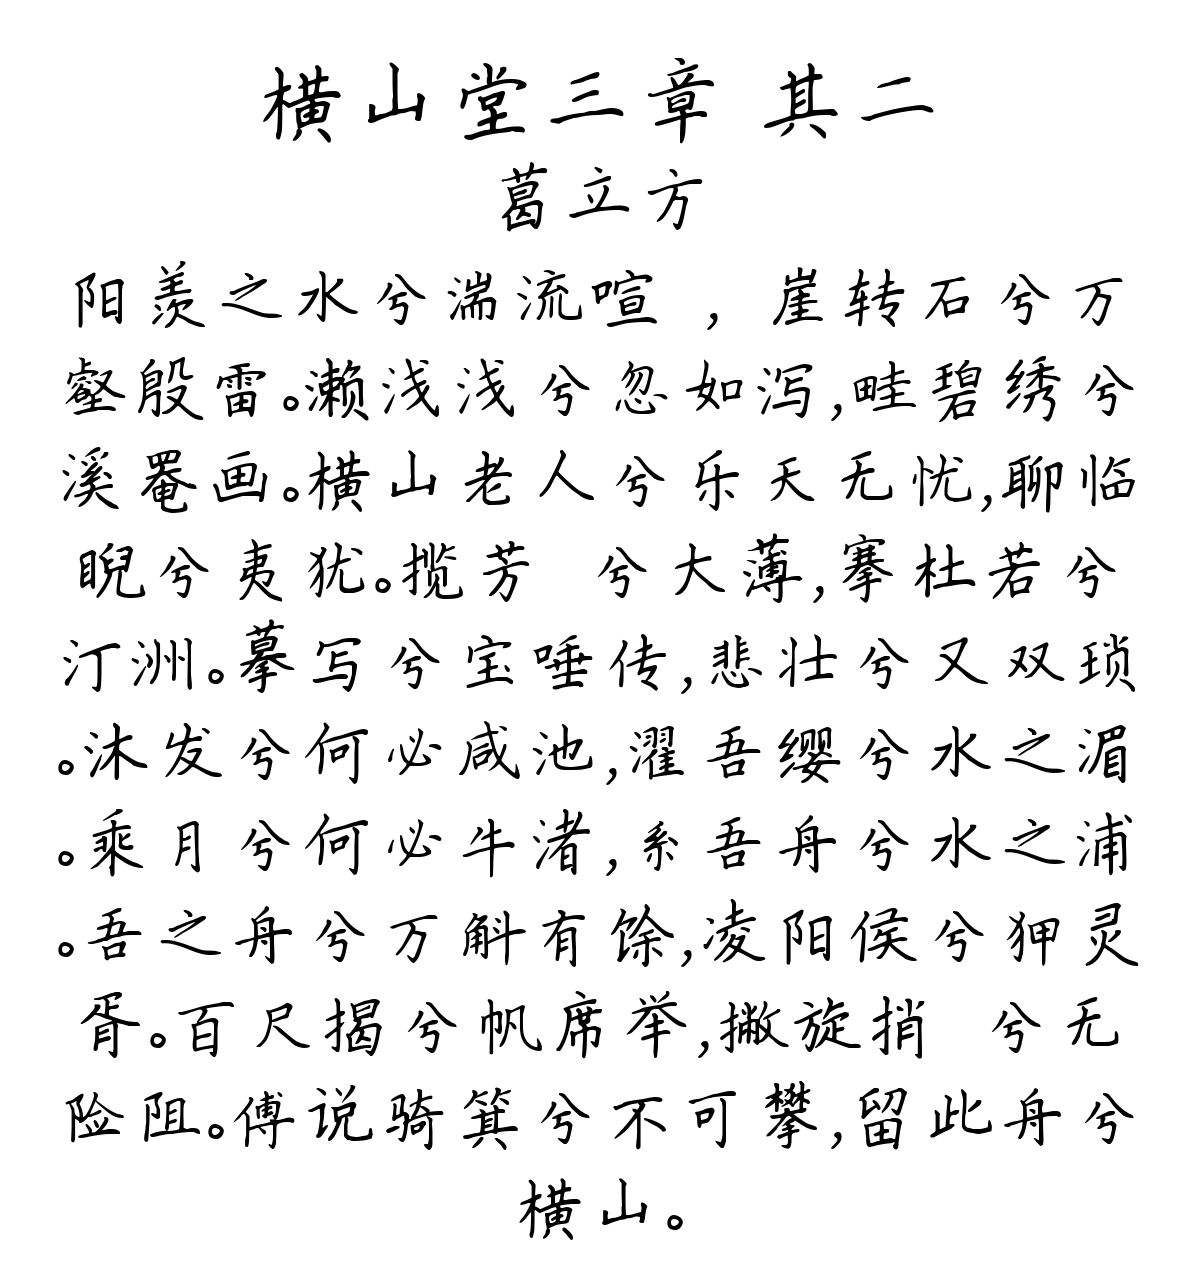 横山堂三章 其二
葛立方
阳羡之水兮湍流喧 ，崖转石兮万
壑殷雷。濑浅浅兮忽如泻,畦碧绣兮
溪罨画。横山老人兮乐天无忧,聊临
睨兮夷犹。揽芳 兮大薄,搴杜若兮
汀洲。摹写兮宝唾传,悲壮兮又双琐
。沐发兮何必咸池,濯吾缨兮水之湄
。乘月兮何必牛渚,系吾舟兮水之浦
。吾之舟兮万斛有馀,凌阳侯兮狎灵
胥。百尺揭兮帆席举,撇旋捎 兮无
险阻。傅说骑箕兮不可攀,留此舟兮
横山。